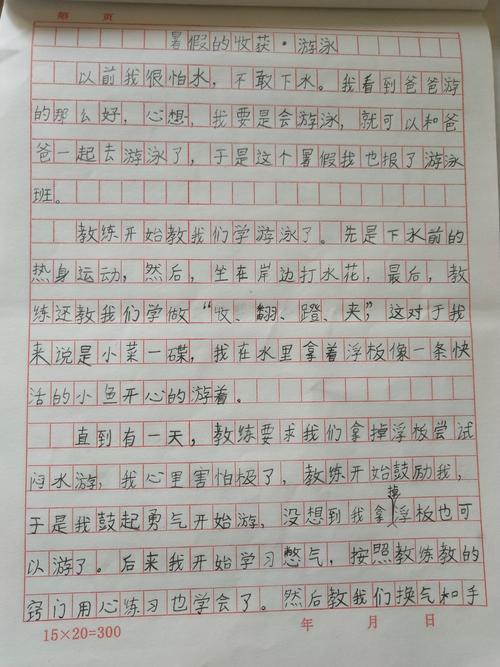 第 页
暑假的收获·游泳
以前我很怕水，不敢下水。我看到爸爸游
的那么好，心想，我要是会游泳，就可以和爸
爸一起去游泳了，于是这个暑假我也报了游泳
班。
教练开始教我们学游泳了。先是下水前的
热身运动，然后，坐在岸边打水花，最后，教
练还教我们学做“收、翻、蹬、夹”，这对于我
来说是小菜一碟，我在水里拿着浮板像一条快
活的小鱼开心的游着。
直到有一天，教练要求我们拿掉浮板尝试
闷水游，我心里害怕极了，教练开始鼓励我，
于是我鼓起勇气开始游，没想到我拿掉浮板也可
以游了。后来我开始学习憋气，按照教练教的
窍门用心练习也学会了。然后教我们换气和手
15×20=300 年 月 日